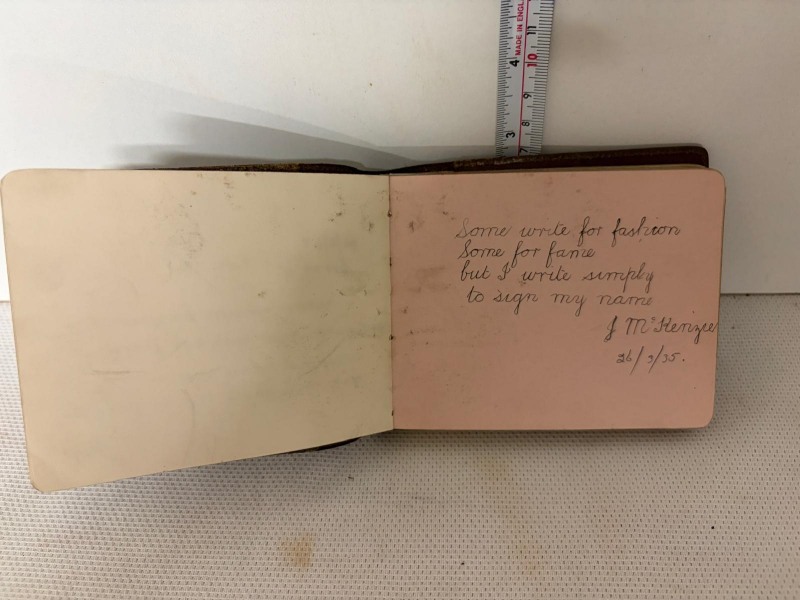 MADE IN ENGL
4
3
11
10
9
8
7
Some write for fashion
Some for fame
but I write simply
to sign my name
J McKenzie
26/3/35.